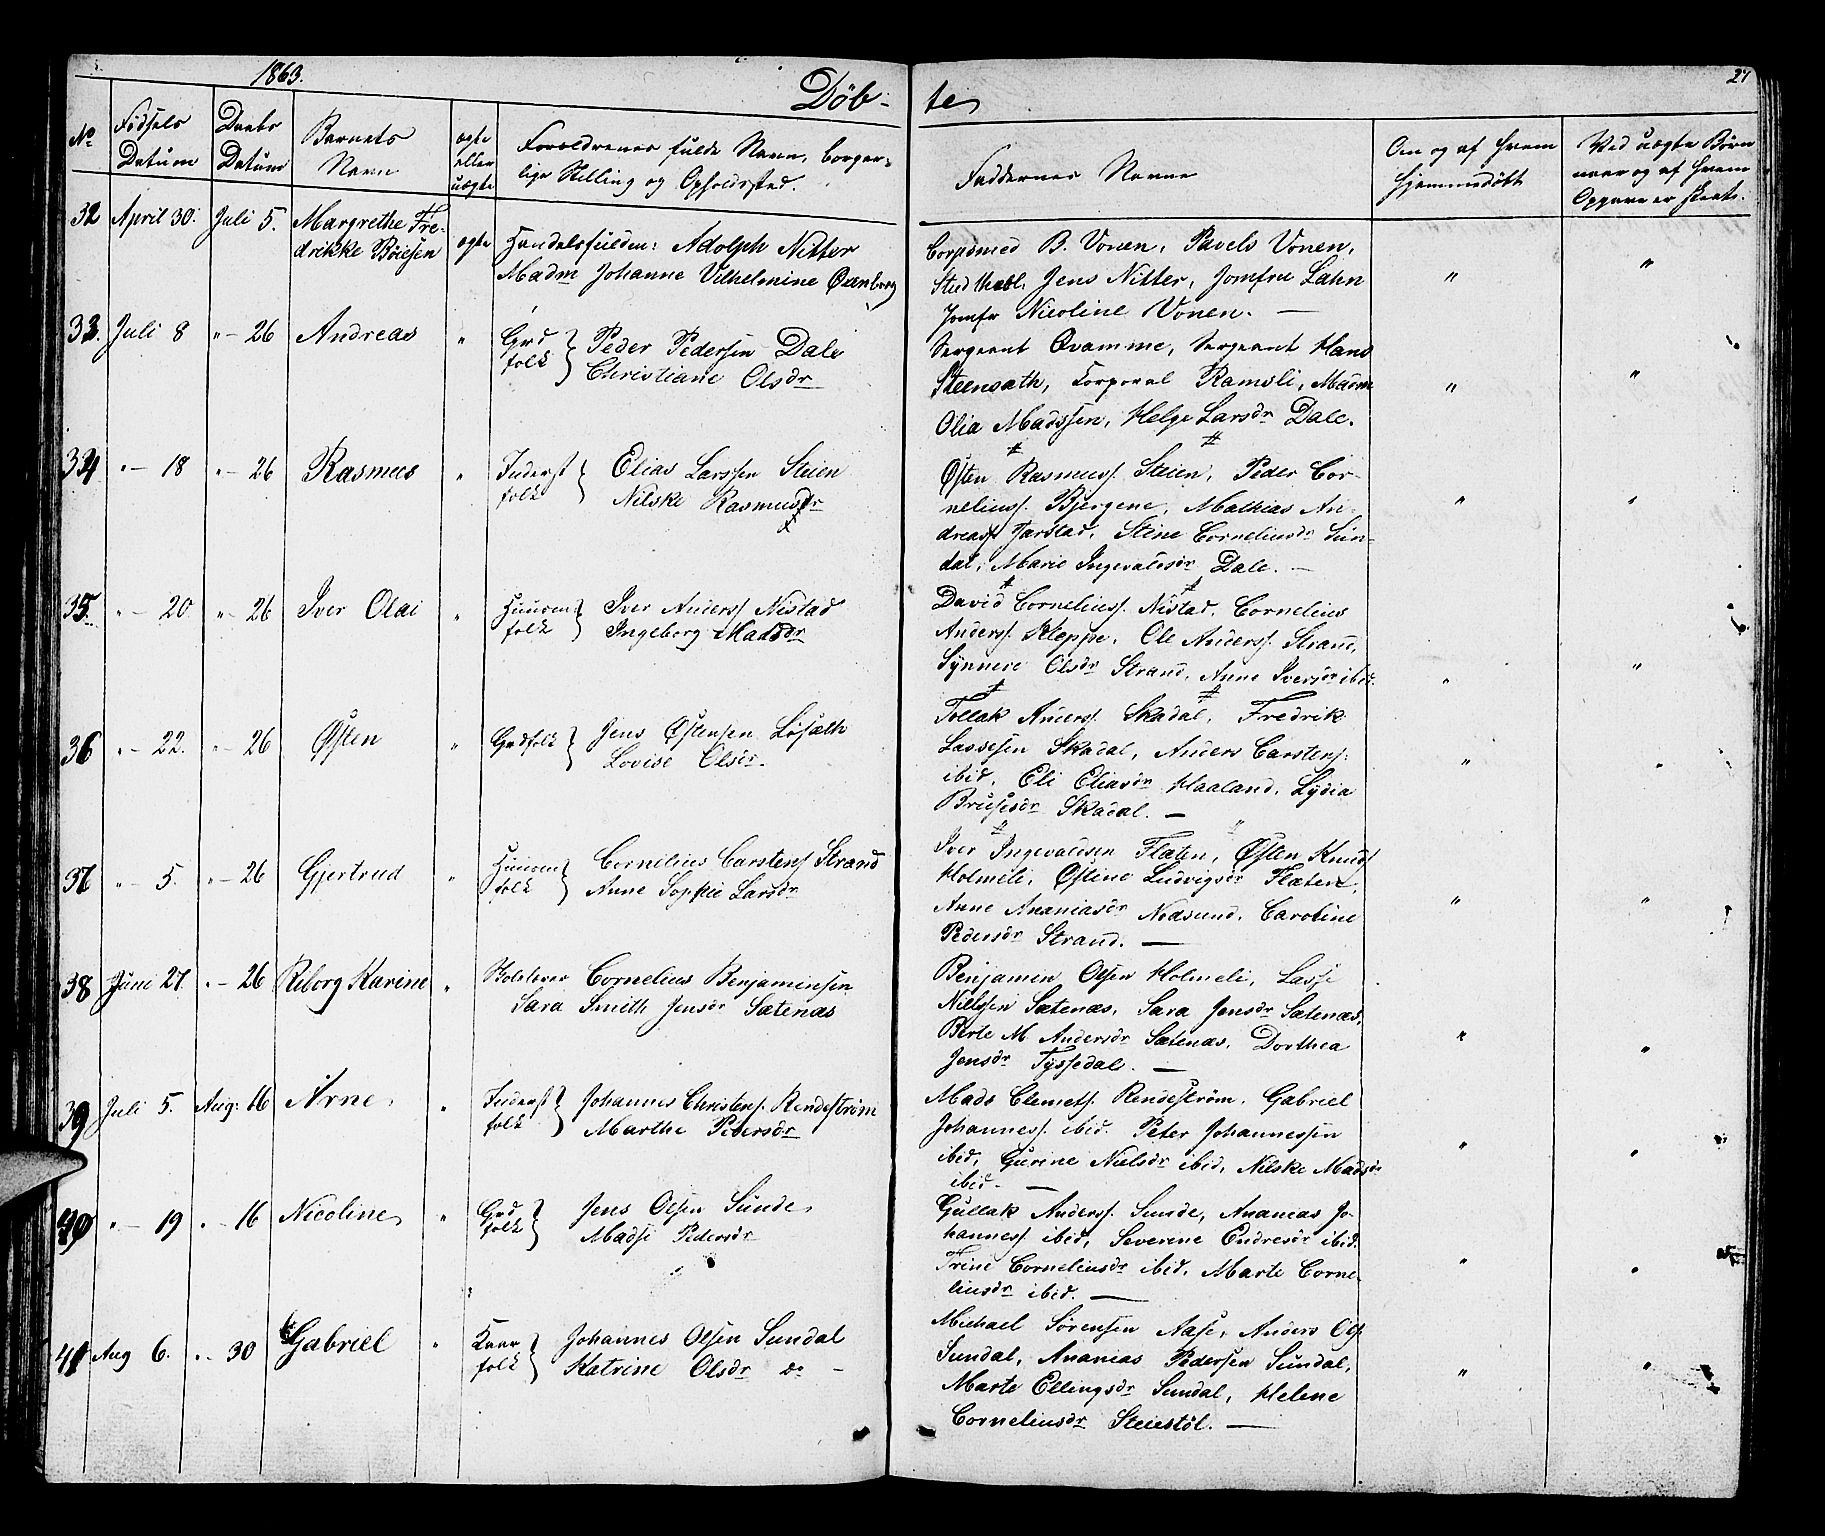 1863.
27
Døb-
te
No
Fødsels
Datum
Daabs
Datum
Barnets
Navn
ægte
eller
uægte
Forældrenes fulde Navn, borger-
lige Stilling og Opholdssted.
Faddernes Navne
Om og af hvem
hjemmedøbt
Ved uægte Børn
naar og af hvem
Opgave er skeet.
32 April 30. Juli 5. Margrethe Fre-
drikke Böiesen
ægte
Adolph Nitter
Madm Johanne Vilhelmine
B. Vonen, Pavels Vonen,
Jens Nitter, Jomfru Lahn
Jomfr Nicoline Vonen. —
33. Juli 8 " — 26 Andreas "
Grd
folk } Peder Pedersen Dale
Christiane Olsdr
Sergeant Qvamme, Sergeant Hans
Steensæth, Korporal Ramsli, Madm
Olia Madssen, Helge Larsdr Dale.
34 " — 18 " — 26 Rasmus "
Inderst
folk } Elias Larssen Steien
Nilske Rasmusdr
Østen Rasmuss. Steien, Peder Cor-
neliuss. Bjergene, Mathias An-
dreass Jarstad, Stine Corneliusdr Sun-
dal, Marie Ingevaldsdr Dale. —
35. " — 20 " — 26 Iver Olai "
Huusm:
folk } Iver Anderss Nistad
Ingeborg Madsdr
David Corneliuss. Nistad, Cornelius
Anderss. Kleppe, Ole Anderss. Strand,
Synneve Olsdr Strand, Anne Iversdr ibid.
36 " — 22. " — 26 Østen "
Grdfolk } Jens Østensen Løsæth
Lovise Olsdr.
Tollak Anderss. Skadal, Fredrik
Lassesen Skadal, Anders Carstens.
ibid, Eli Eliasdr Haaland, Lydia
Brusesdr Skadal. —
37 " — 5. " — 26 Gjertrud "
Huusm
folk } Cornelius Carstens Strand
Anne Sophie Larsdr
Iver Ingevaldsen Flæten, Østen Knuds
Holmeli, Østine Ludvigsdr Flæten,
Anne Ananiasdr Nødsund, Caroline
Pedersdr Strand. —
38 Juni 27. " — 26 Riborg Karine "
Cornelius Benjaminsen
Sara Smith Jensdr Sætenæs
Benjamin Olsen Holmeli, Lasse
Nielssen Sætenæs, Sara Jensdr Sætenæs,
Berte M Andersdr Sætenæs, Dorthea
Jensdr Tyssedal. —
39 Juli 5. Aug: 16 Arne "
Inderst
folk } Johannes Christens. Rendeström
Marthe Pedersdr
Mads Clemets. Rendeström, Gabriel
Johanness. ibid. Peter Johannessen
ibid, Gurine Nielsdr ibid, Nilske Madsdr
ibid. —
40 " — 19 " — 16 Nicoline "
Grd
folk } Jens Olsen Sunde
Madsi Pedersdr
Gullak Anderss. Sunde, Ananias Jo-
hanness ibid, Severine Endresdr ibid.
Trine Corneliusdr ibid, Marte Corne-
liusdr ibid. —
41 Aug 6. " — 30 Gabriel "
Kaar
folk } Johannes Olsen Sundal
Katrine Olsdr do —
Michael Sörensen Aase, Anders Ols
Sundal, Ananias Pedersen Sundal,
Marte Ellingsdr Sundal, Helene
Corneliusdr Steiestöl. —